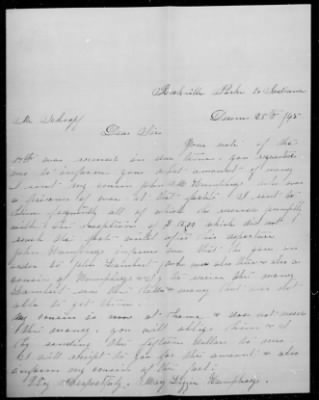 Rockville Parke Co Indiana
25th /95
Mr
Dear Sir
Your note of the
was received in due time. you requested
me to inform you what amount of money
I sent my cousin John M Humphreys who was
a prisoner of war at that place. I sent to
him frequently all of which he received promptly
with the exception of $ which did not
reach the post until after his departure
John Humphreys informs me that he gave an
order to John Lambert who was also there & also a
cousin of Humphreys & to receive the money
Lambert saw the letter & money but was not
able to get them.
My cousin is now at home & does not need
the money. you will oblige them & I
by sending the fifteen dollars to me
I will receipt to you for the amount & also
inform my cousin of the fact.
Very Respectfully. Mary Lizzie Humphreys.